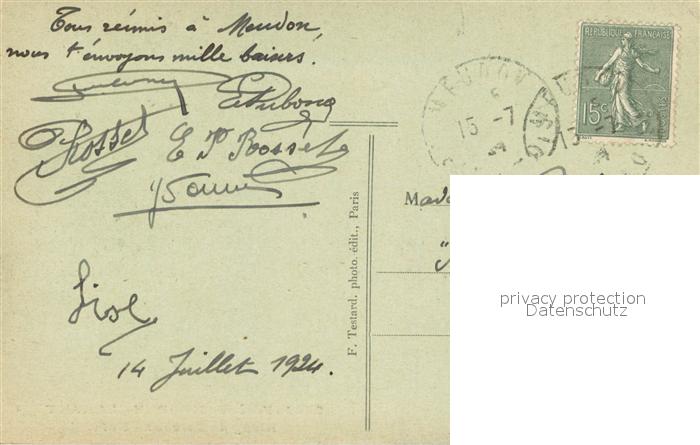 Tous réunis à Meudon,
nous t'envoyons mille baisers.
Rosset
E P Rosset
Lise
14 Juillet 1924.
F. Testard. photo. édit., Paris
REPUBLIQUE FRANÇAISE
15c
MEUDON
15 -7
15 -7
Mada
privacy protection
Datenschutz